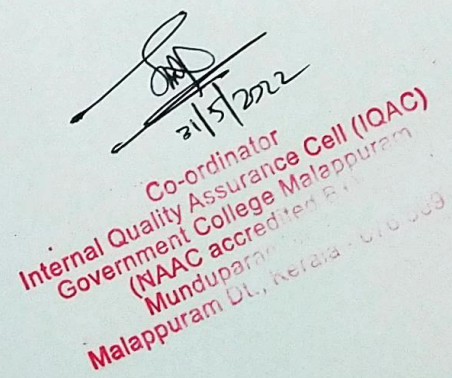 31/5/2022
Co-ordinator
Internal Quality Assurance Cell (IQAC)
Government College Malappuram
(NAAC accredited
Munduparamba
Malappuram Dt., Kerala - 676 509